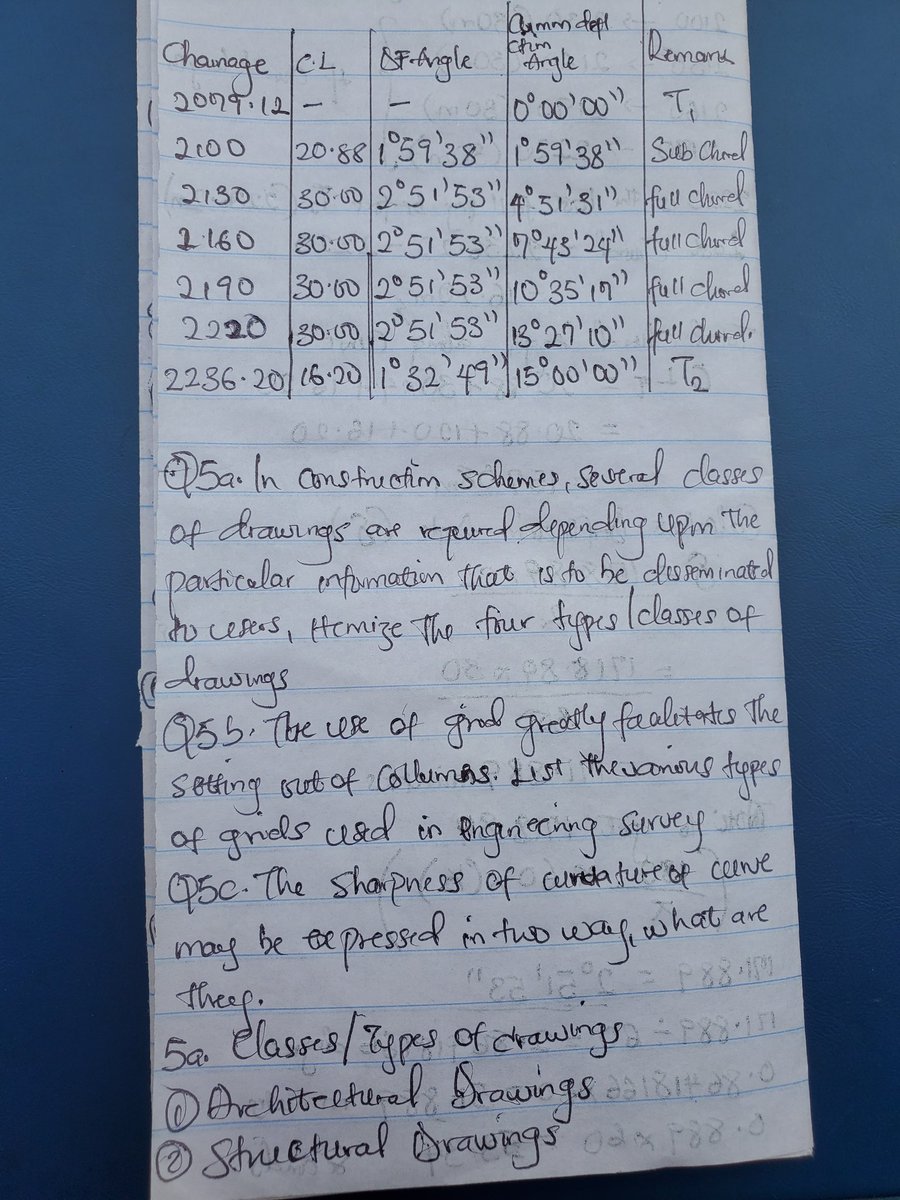 Chainage | C.L | DF. Angle | Cumm defl ction Angle | Remark
2079.12 | – | – | 0°00'00" | T1
2100 | 20.88 | 1°59'38" | 1°59'38" | Sub Chord
2130 | 30.00 | 2°51'53" | 4°51'31" | full chord
2160 | 30.00 | 2°51'53" | 7°43'24" | full chord
2190 | 30.00 | 2°51'53" | 10°35'17" | full chord
2220 | 30.00 | 2°51'53" | 13°27'10" | full chord.
2236.20 | 16.20 | 1°32'49" | 15°00'00" | T2
Q5a. In construction schemes, several classes
of drawings are required depending upon the
particular information that is to be disseminated
to users, Itemize the four types/classes of
drawings
Q5b. The use of grid greatly facilitates the
setting out of Collumns. List the various types
of grids used in engineering survey
Q5c. The sharpness of curvature of curve
may be expressed in two way, what are
they.
5a. Classes/Types of drawings
① Architectural Drawings
② Structural Drawings